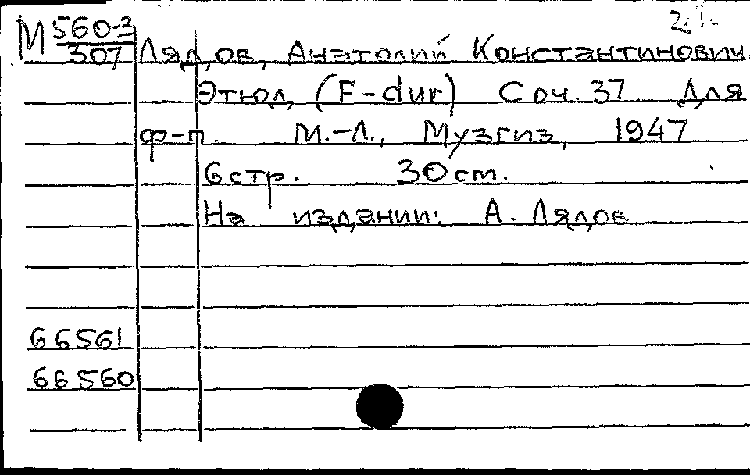 М 560-3
307 Лядов, Анатолий Константинович.
Этюд (F-dur) Соч. 37 Для
ф-п М.-Л., Музгиз, 1947
6 стр. 30 cm.
На издании: А. Лядов
66561
66560